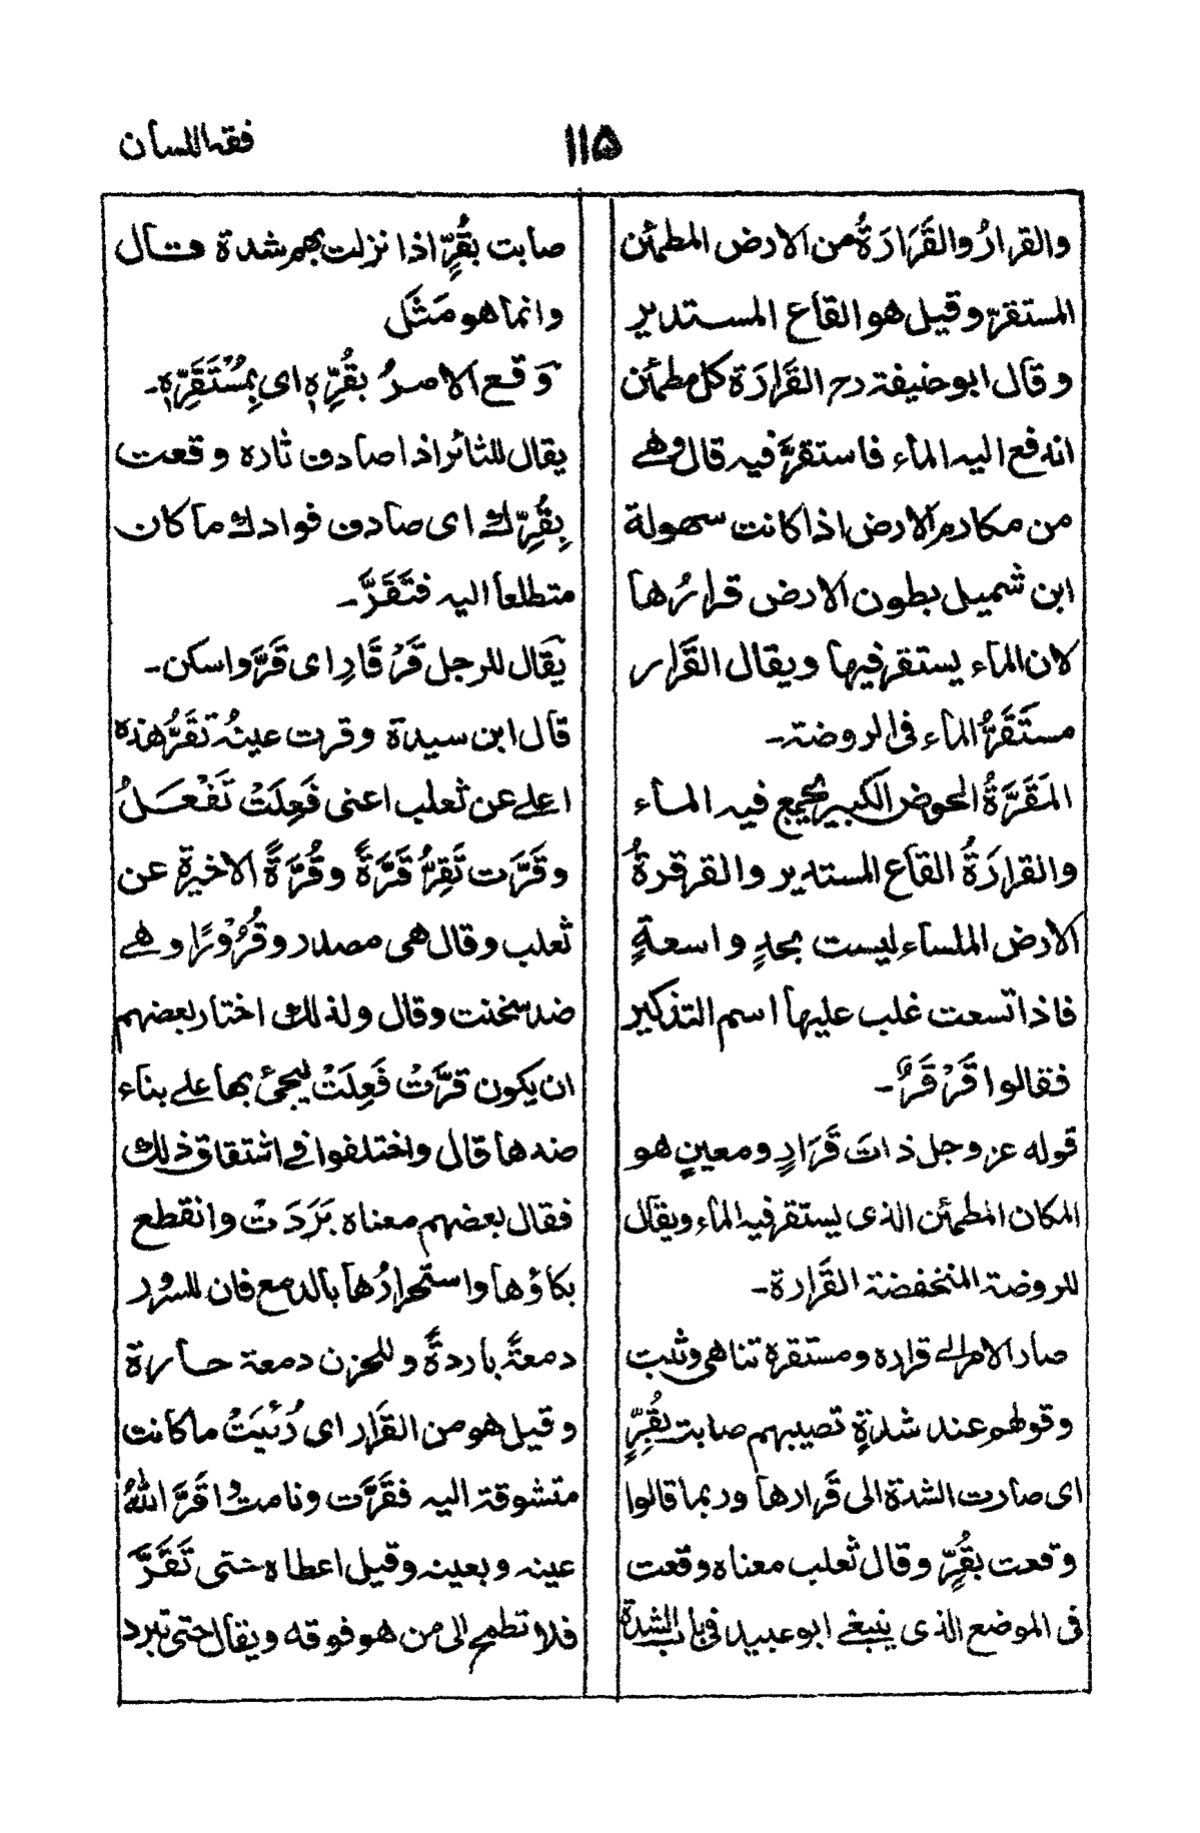 فقه اللسان
١١٥
والقرارُ والقَرَارَةُ من الارض المطمئن
المستقرّ وقيل هو القاع المستدير
وقال ابو حنيفة رح القَرارَة كل مطمئن
اندفع اليه الماء فاستقرَّ فيه قال وهى
من مكارم الارض اذا كانت سهولة
ابن شميل بطون الارض قرارُها
لان الماء يستقر فيها ويقال القَرار
مستَقَرُّ الماء فى الروضة۔
المَقَرَّةُ الحوض الكبير يجمع فيه الماء
والقرارَةُ القاع المستدير والقرقرةُ
الارض الملساء ليست بجدٍ واسعةٍ
فاذا اتسعت غلب عليها اسم التذكير
فقالوا قَرْقَرٌ۔
قوله عز وجل ذات قَرَارٍ ومعينٍ هو
المكان المطمئن الذى يستقر فيه الماء ويقال
للروضة المنخفضة القَرارة۔
صار الامر الى قراره ومستقره تناهى وثبت
وقولهم عند شدةٍ تصيبهم صابت بقُرٍّ
اى صارت الشدة الى قَرارها وربما قالوا
وقعت بقُرٍّ وقال ثعلب معناه وقعت
فى الموضع الذى ينبغى ابو عبيد فى باب الشدة
صابت بقُرٍّ اذا نزلت بهم شدة قال
وانما هو مَثَل
وَقع الامرُ بقُرِّهٖ اى بِمُسْتَقَرِّهٖ۔
يقال للثائر اذا صادف ثاره وقعت
بِقُرِّك اى صادف فوادك ما كان
متطلعا اليه فتَقَرَّ۔
يقال للرجل قَرْ قَارِ اى قَرَّ واسكن۔
قال ابن سيدة وقرت عينُه تقَرُّ هذه
اعلى عن ثعلب اعنى فَعِلَتْ تَفْعَلُ
وقَرَّت تَقِرُّ قَرَّةً وقُرَّةً الاخيرة عن
ثعلب وقال هى مصدر وقُرُوْرًا وهى
ضد سخنت وقال ولذلك اختار بعضهم
ان يكون قرَّتْ فَعِلَتْ ليجئ بها على بناء
ضدها قال واختلفوا فى اشتقاق ذلك
فقال بعضهم معناه بَرَدَتْ وانقطع
بكاؤها واستحرارُها بالدمع فان للسرور
دمعةً باردةً وللحزن دمعة حارة
وقيل هو من القَرار اى رُئيَتْ ما كانت
متشوقة اليه فقَرَّت ونامت واقَرَّ اللهُ
عينه وبعينه وقيل اعطاه حتى تَقَرَّ
فلا تطمح الى من هو فوقه ويقال حتى تبرد